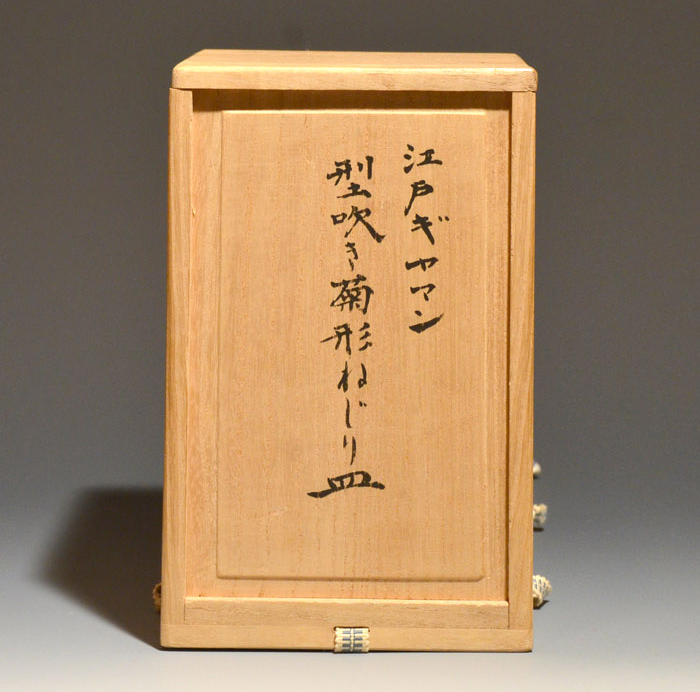 江戸ギヤマン
型吹き菊形ねじり皿